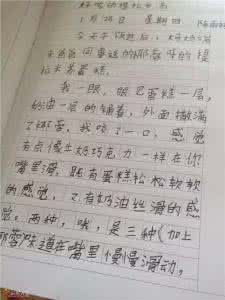 好吃的提拉米苏
1月28日 星期四
今天午饭后，妈妈
回
拉米苏蛋糕。
我一眼，眼见蛋糕一层，
奶油一层的铺着，外面撒满
了椰蓉，我吃了一口，感觉
有点像生奶巧克力一样在你
嘴里滑，既有蛋糕松松软软
的感觉，又有奶油丝滑的感
觉。两种，哦，是三种（加上
味道在嘴里慢慢滑动，